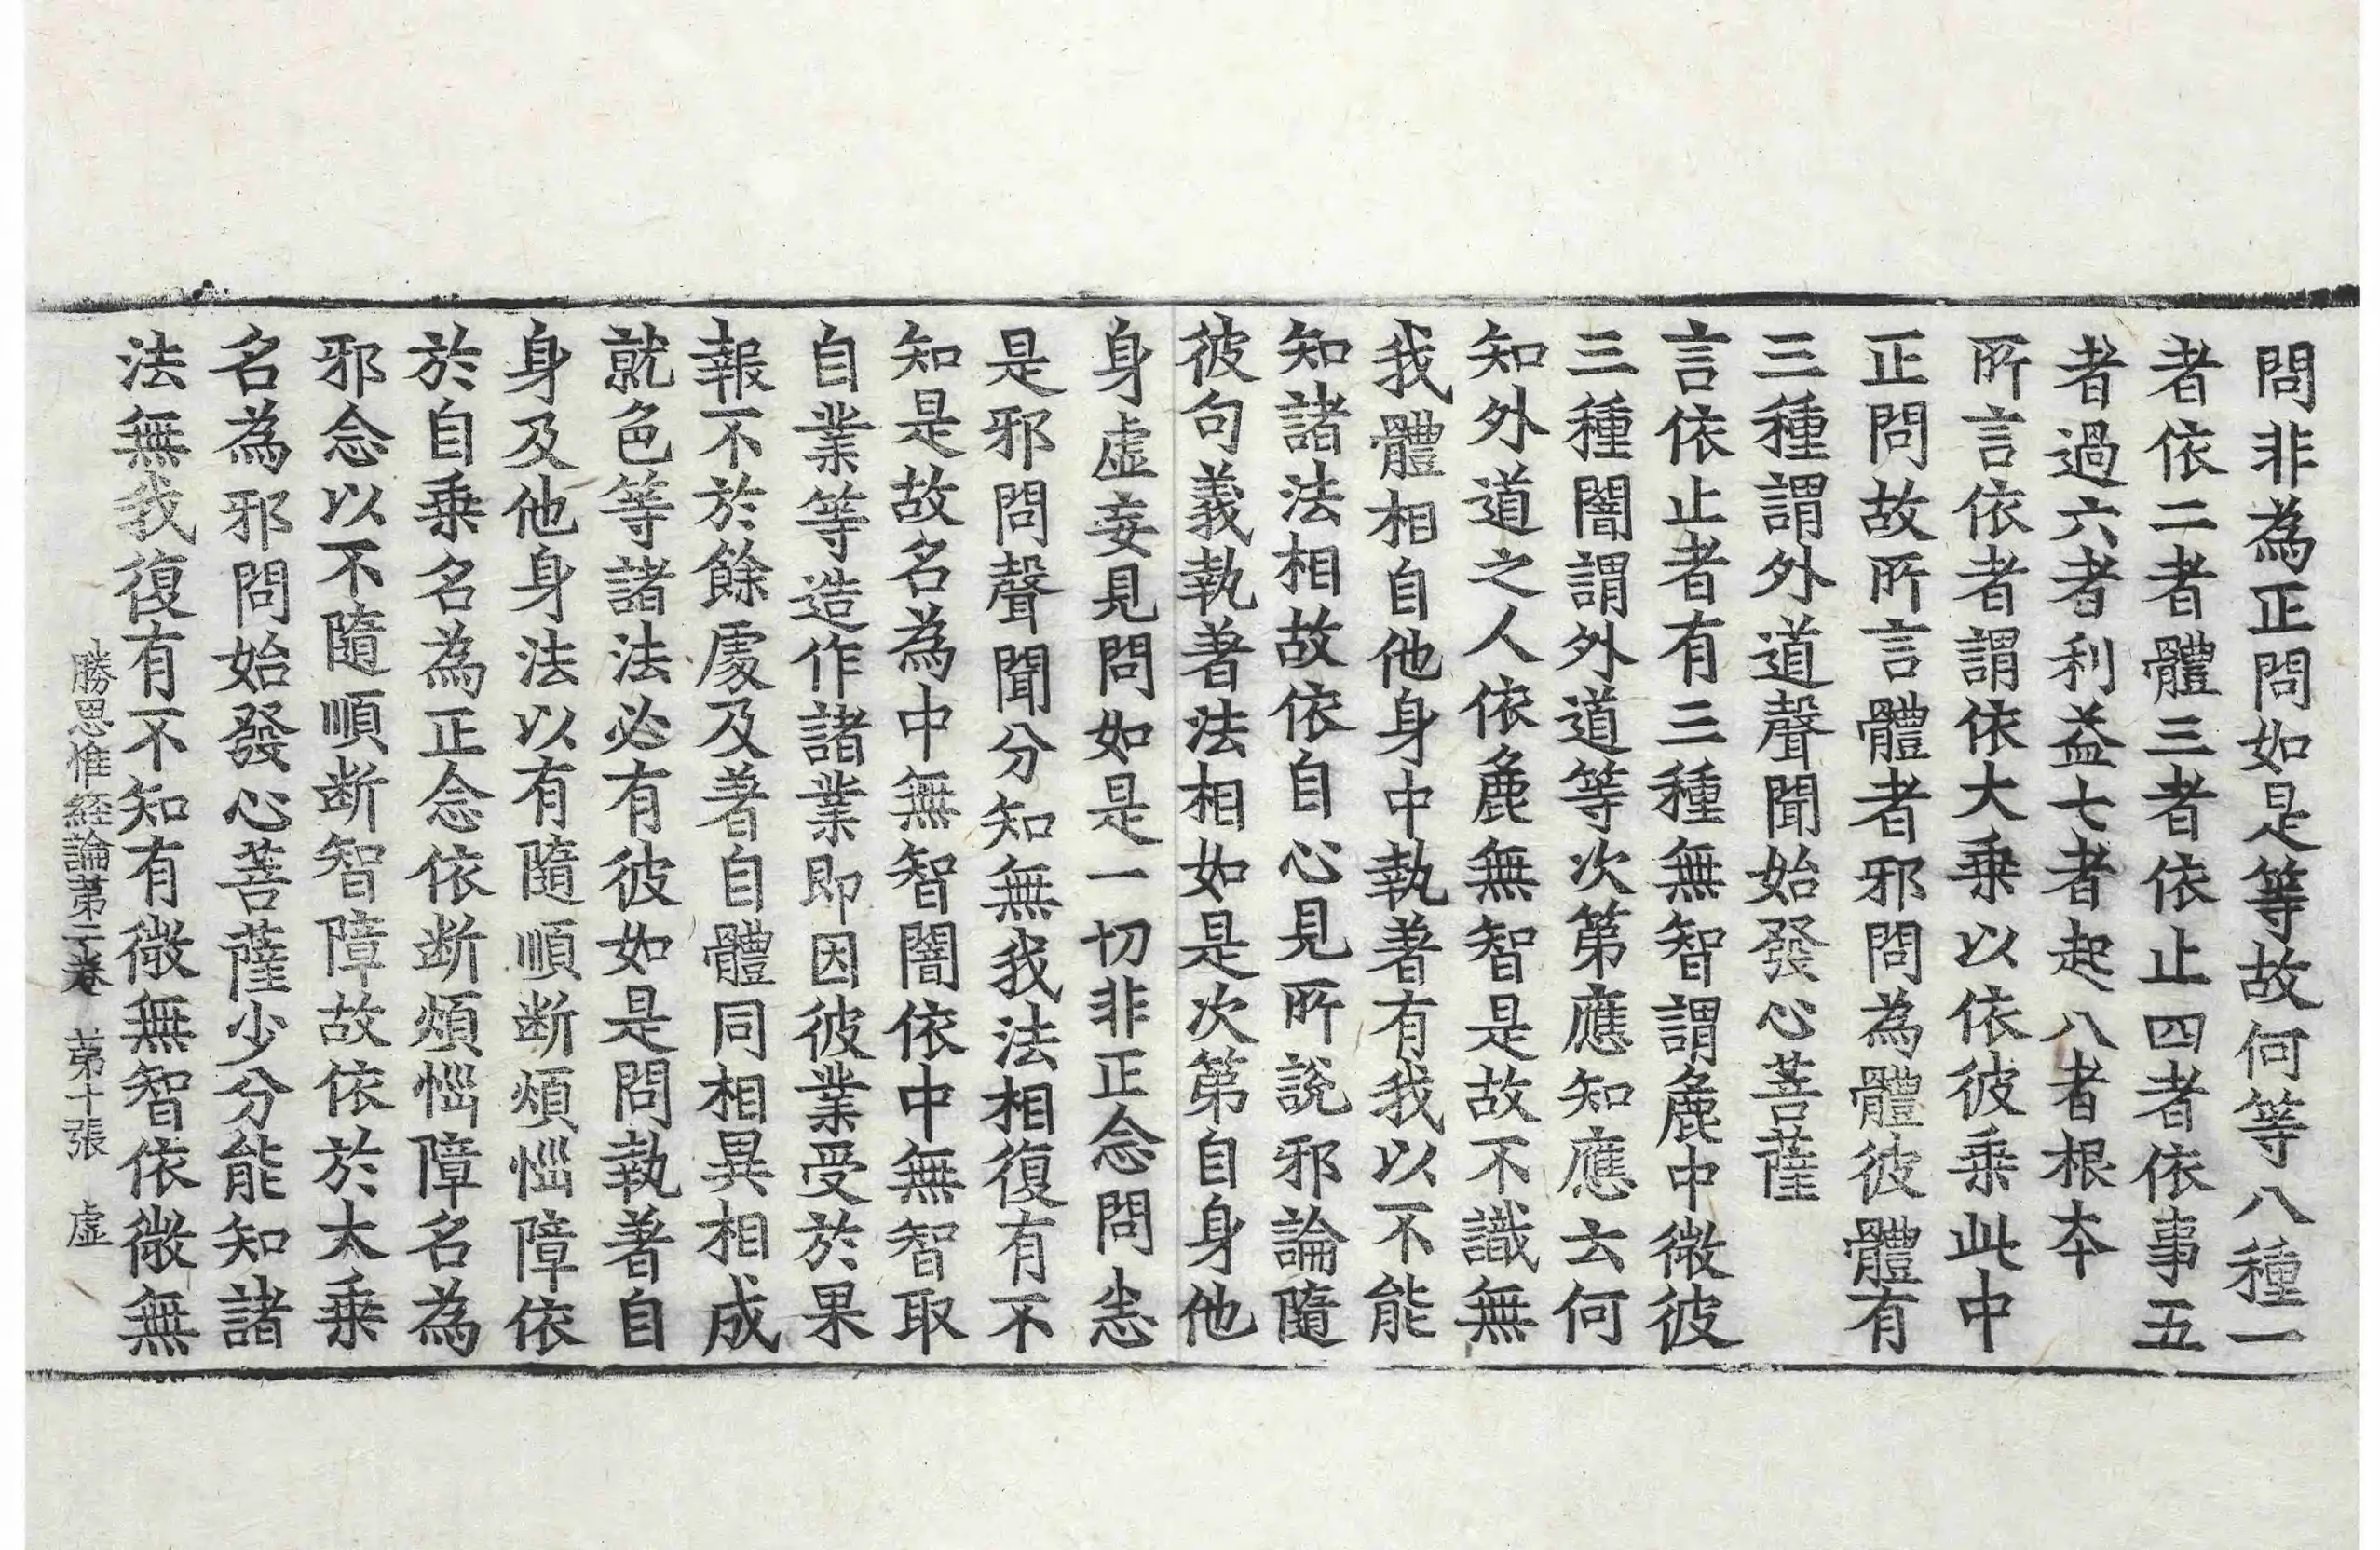 問非為正問如是等故何等八種一
者依二者體三者依止四者依事五
者過六者利益七者起八者根本
所言依者謂依大乘以依彼乘此中
正問故所言體者邪問為體彼體有
三種謂外道聲聞始發心菩薩
言依止者有三種無智謂麁中微彼
三種闇謂外道等次第應知應云何
知外道之人依麁無智是故不識無
我體相自他身中執著有我以不能
知諸法相故依自心見所說邪論隨
彼句義執著法相如是次第自身他
身虛妄見問如是一切非正念問恙
是邪問聲聞分知無我法相復有不
知是故名為中無智闇依中無智取
自業等造作諸業即因彼業受於果
報不於餘處及著自體同相異相成
就色等諸法必有彼如是問執著自
身及他身法以有隨順断煩惱障依
於自乘名為正念依断煩惱障名為
邪念以不隨順断智障故依於大乘
名為邪問始發心菩薩少分能知諸
法無我復有不知有微無智依微無
勝思惟經論苐二卷　苐十張　虛